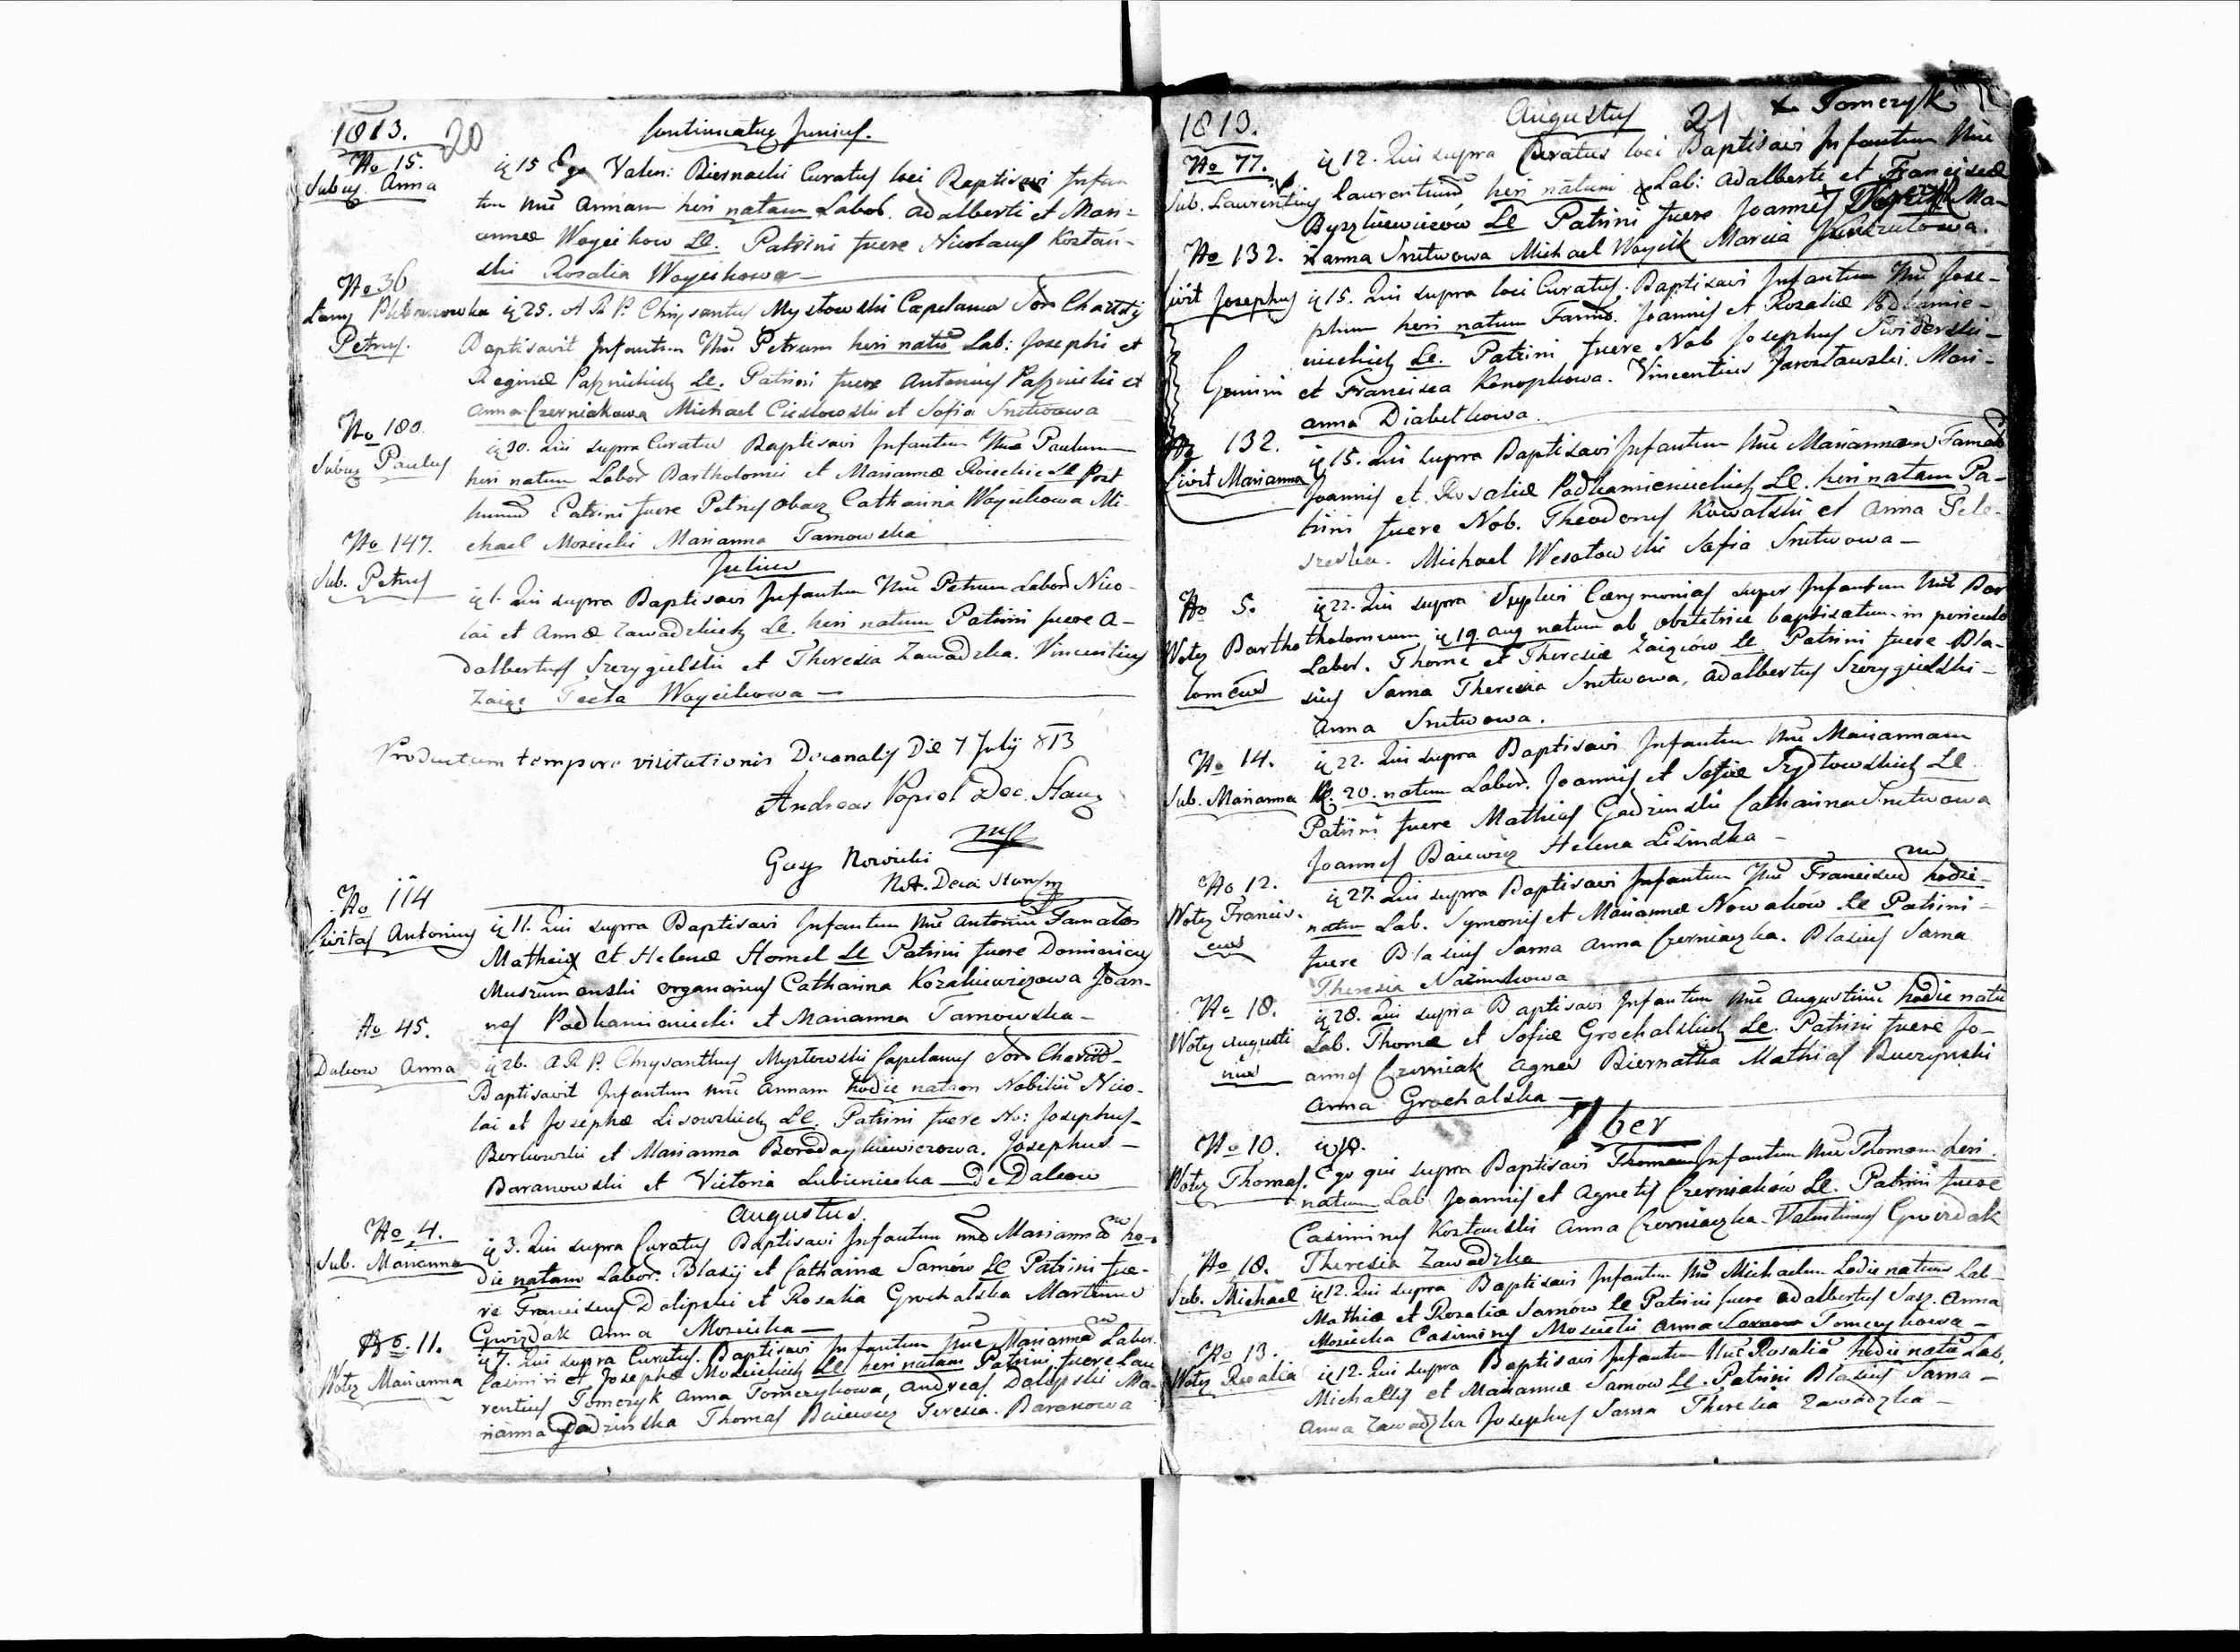 1813. 20 Continuatus Junius.
No 15. ią 15 Ego Valen: Biernacki Curatus loci Baptisavi Infan
Subus. Anna tem Nne Annam heri natam Labor. Adalberti et Mari=
annæ Wayciikow LC. Patrini fuere Nicolaus Koztań-
ski Rosalia Wayciikowa
No 36
ią 25. A R P. Chrysantus Mystowski Capelanus
Petrus. Baptisavit Infantem Nne Petrum heri natū Lab: Josephi et
Reginæ LC. Patrini fuere Antonius et
Anna Czerniakowa Michael Cieslowski et Sofia Snitwowa
No 180. ią 30. Qui supra Curatus Baptisavi Infantem Nne Paulum
Subus Paulus heri natum Labor Bartholomei et Mariannæ LC Post
humū Patrini fuere Petrus Obacz Catharina Wayciikowa Mi-
No 147. chael Mosiucki Marianna Tarnowska
Julius
Sub. Petrus ią 1. Qui supra Baptisavi Infantem Nne Petrum Labor Nico-
lai et Annæ Zawadzkich LC. heri natum Patrini fuere A-
dalbertus Szczygielski et Theresia Zawadzka. Vincentius
Zaiąc Tecla Wayciikowa
Productum tempore visitationis Decanalis Die 7 July 813
Andreas Popiel Dec. Stanz
mp
Gasp Nowicki
Not. Deca Stanz mp
No 114
Civitas Antonius ią 11. Qui supra Baptisavi Infantem Nne Antoniū Famatos
Matheiy et Helenæ Homel LC Patrini fuere Dominicus
Muszumanski organarius Catharina Kozakiewiczowa Joan-
nes Podkamieniecki et Marianna Tarnowska
No 45.
Daleow Anna ią 26. A R P. Chrysanthus Mystowski Capelanus
Baptisavit Infantem Nne Annam hodie natam Nobiliū Nico-
lai et Josephæ Lisowskich LC. Patrini fuere No: Josephus
Borkowski et Marianna Boradaykiewiczowa. Josephus
Baranowski et Victoria Lubieniecka De Daleow
Augustus.
No 4. ią 3. Qui supra Curatus Baptisavi Infantem Nne Mariannā ho-
Sub. Marianna die natam Labor. Blasij et Catharinæ Sarnów LC Patrini fue-
re Franciscus Dalipski et Rosalia Grochalska Martinus
Gwizdak Anna Mosiucka
No. 11. ią 7. Qui supra Curatus. Baptisavi Infantem Nne Mariannā Labor.
Wotez Marianna Casimiri et Josephæ Mosiuckich LC heri natam Patrini fuere Lau
rentius Tomczyk Anna Tomczykowa, Andreas Dalipski Ma-
rianna Gadzinska Thomas Baiewicz Teresia Baranowa
1813. Augustus 21 x Tomczyk
No 77. ią 12. Qui supra Curatus loci Baptisavi Infantem Nne
Sub. Laurentius Laurentium heri natum Lab: Adalberti et Franciscæ
LC Patrini fuere Joannes Ma-
No 132. rianna Snitwowa Michael Wayciik Marcia
Civit Josephus ią 15. Qui supra loci Curatus. Baptisavi Infantem Nne Jose-
phum heri natum Famos. Joannis et Rozaliæ Podkamie-
nieckich LC. Patrini fuere Nob Josephus Swiderski
Gemini et Francisca Konopkowa. Vincentius Jarosławski. Mari-
anna Diabetkowa.
No 132. ią 15. Qui supra Baptisavi Infantem Nne Mariannam Famos
Civit Marianna Joannis et Rosaliæ Podkamienieckich LC. heri natam Pa-
trini fuere Nob. Theodorus Kowalski et Anna Fele-
szeska. Michael Wesołowski Safia Snitwowa
No 5. ią 22. Qui supra Suplevi Cærymonias super Infantem Nne Bar
Wotez Bartho tholomeum ią 19. Aug natum ab obstetrice baptisatum in periculo
lomeus Labor. Thomæ et Theresiæ Zaiąców LC Patrini fuere Bla-
sius Sarna Theresia Snitwowa, Adalbertus Szczygielski
Anna Snitwowa.
No 14. ią 22. Qui supra Baptisavi Infantem Nne Mariannam
Sub. Marianna 20. natam Labor. Joannis et Sofiæ Szydłowskich LC
Patrini fuere Mathias Gadzinski Catharina Snitwowa
Joannes Baiewicz Helena Lisinska
No 12. ią 27. Qui supra Baptisavi Infantem Nne Francisců hodie
Wotez Francis- natum Lab. Symonis et Mariannæ Nowaków LC Patrini
cus fuere Blasius Sarna Anna Czerniaczka. Blasius Sarna
Theresia Naimkowa
No 18. ią 28. Qui supra Baptisavi Infantem Nne Augustinū hodie natū
Wotez Augusti Lab. Thomæ et Sofiæ Grochalskich LC. Patrini fuere Jo-
nus annes Czerniak Agnes Biernatka Mathias Buczynski
Anna Grochalska
7ber
No 10.
Wotez Thomas. Ego qui supra Baptisavi Infantem Nne Thomam heri
natum Lab Joannis et Agnetis Czerniaków LC. Patrini fuere
Casimirus Koztanski Anna Czerniaczka. Valentinus Gwizdak
No 18. Theresia Zawadzka
Sub. Michael ią 12. Qui supra Baptisavi Infantem Nne Michaelem hodie natum Lab
Mathiæ et Rozaliæ Sarnów LC Patrini fuere Adalbertus Sasz. Anna
Mosiucka Casimirus Mosiucki Anna Tomczykowa
No 13.
Wotez Rosalia ią 12. Qui supra Baptisavi Infantem Nne Rosaliā hodie natā Lab,
Michallis et Mariannæ Sarnow LC. Patrini Blasius Sarna
Anna Zawadzka Josephus Sarna Theresia Zawadzka